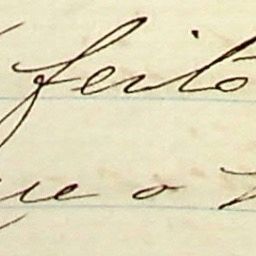 feito
que o